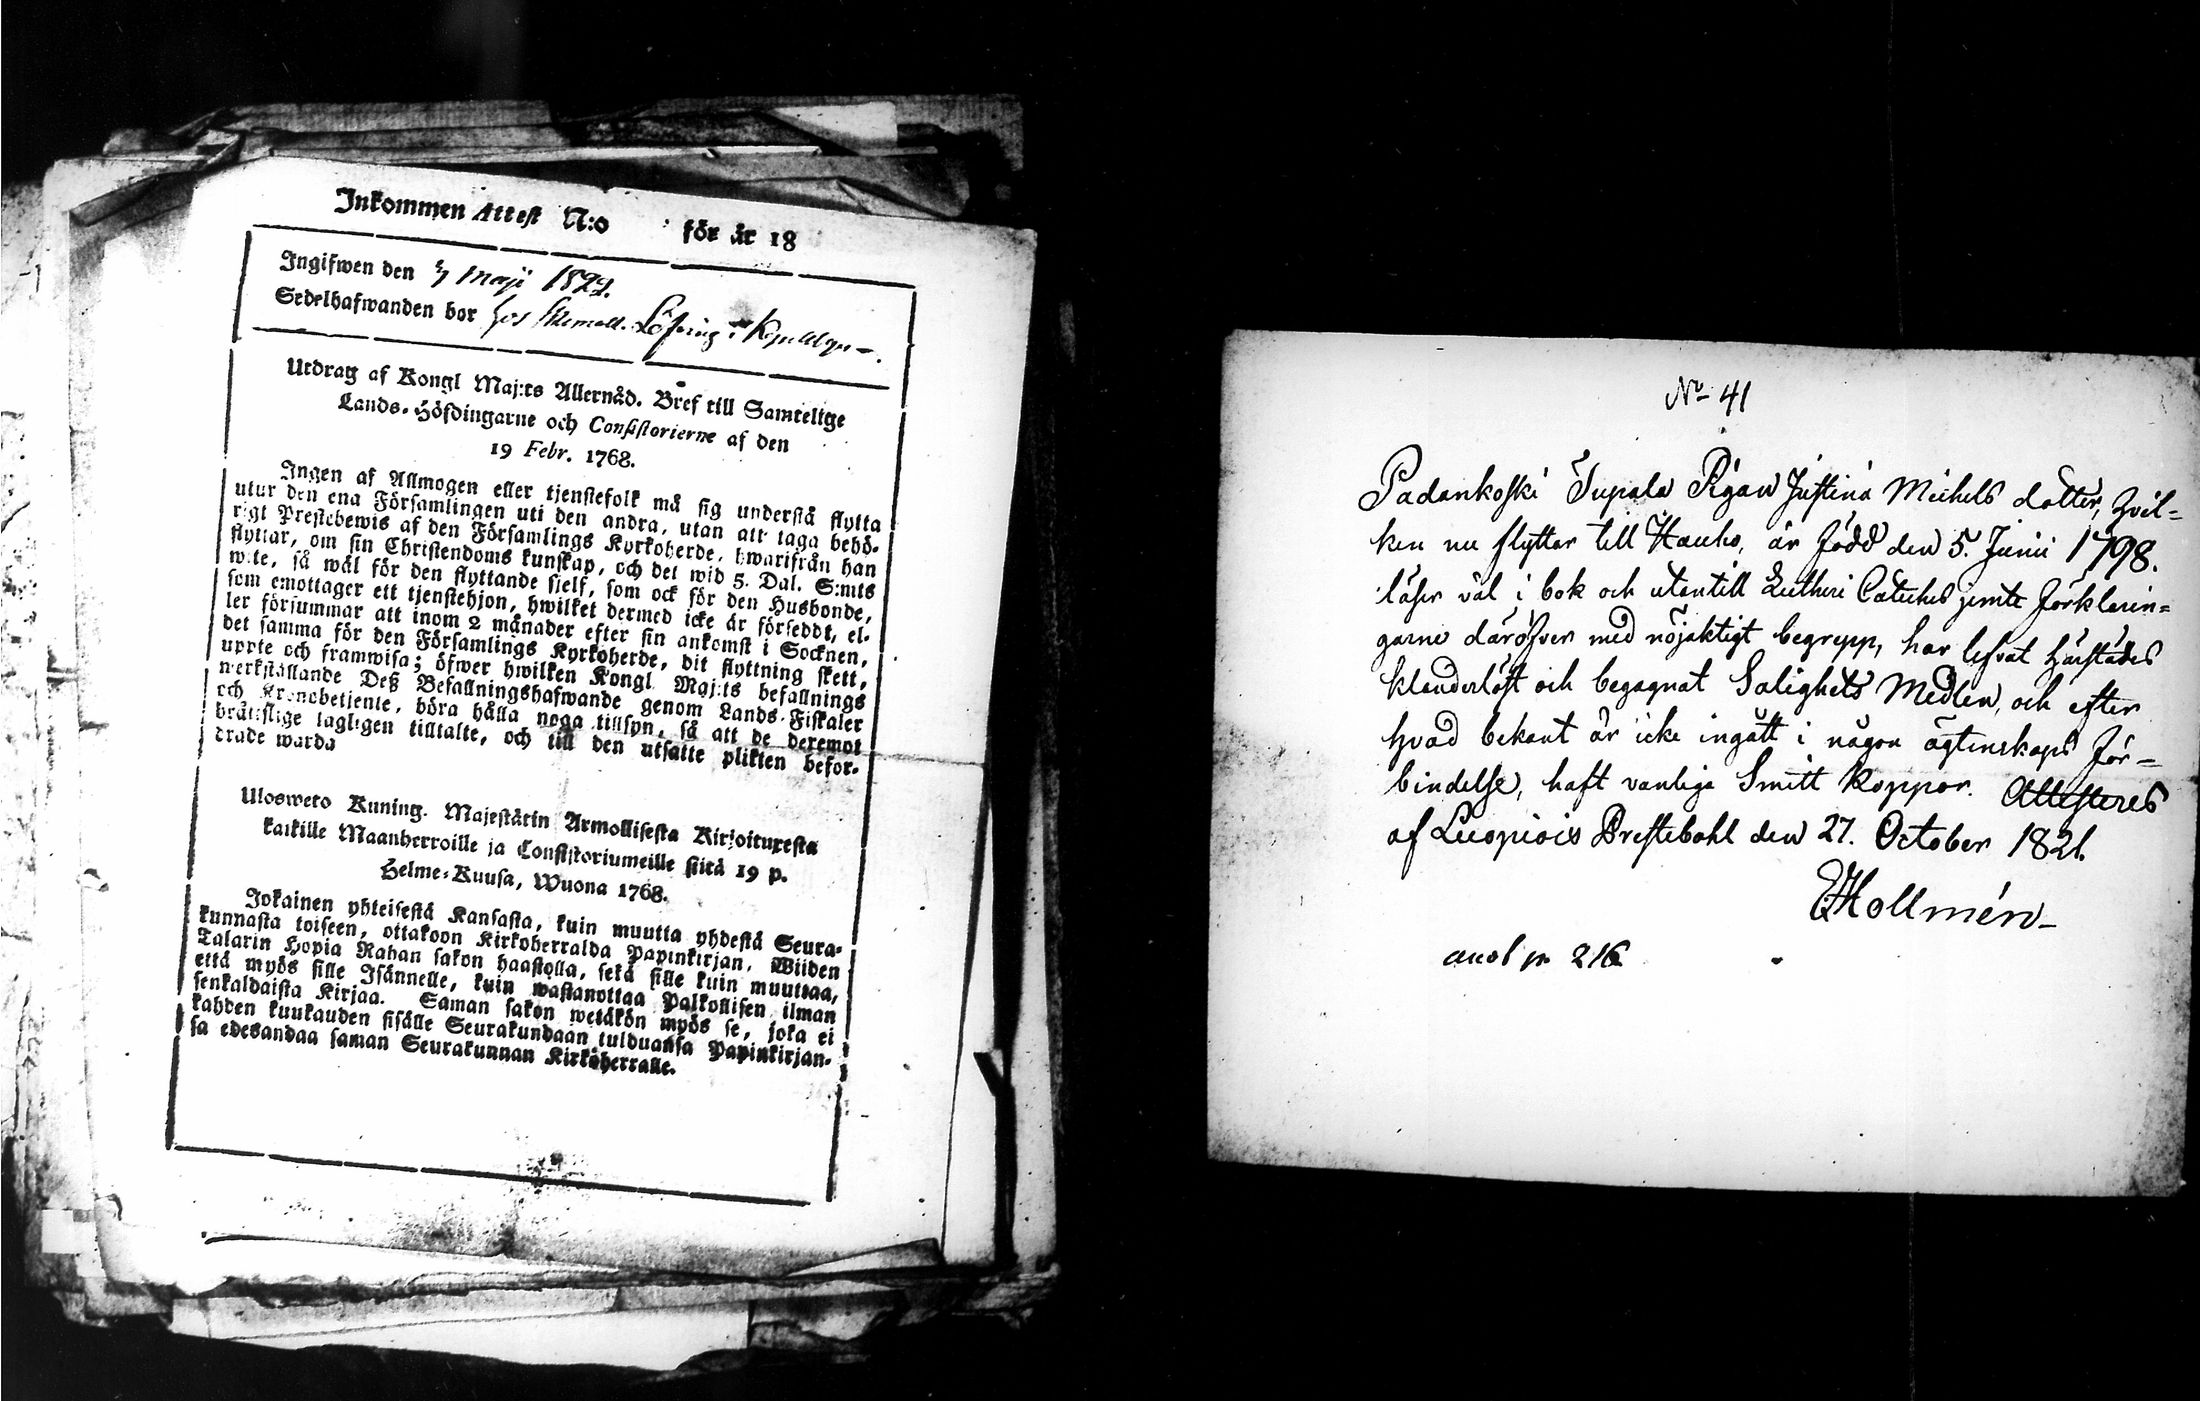 Inkommen Attest N:o för år 18
Ingifwen den 5/7 Maji 1822.
Sedelhafwanden bor hos
Utdrag af Kongl Maj:ts Allernåd. Bref till Samtelige
Lands-Höfdingarne och Consistorierne af den
19 Febr. 1768.
Ingen af Allmogen eller tjenstefolk må sig understå flytta
utur den ena Församlingen uti den andra, utan att taga behö-
rigt Prestebewis af den Församlings Kyrkoherde, hwarifrån han
flyttar, om sin Christendoms kunskap, och det wid 5. Dal. S:mts
wite, så wäl för den flyttande sielf, som ock för den Husbonde,
som emottager ett tjenstehjon, hwilket dermed icke är försedt, el-
ler försummar att inom 2 månader efter sin ankomst i Socknen,
det samma för den Församlings Kyrkoherde, dit flyttning skett,
uppte och framwisa; öfwer hwilken Kongl Maj:ts befallnings
werkställande Deß Befallningshafwande genom Lands-Fiskaler
och Kronobetjente, böra hålla noga tillsyn, så att de deremot
bråttslige lagligen tilltalte, och till den utsatte plikten befor-
drade warda
Ulosweto Kuning. Majestätin Armollisesta Kirjoituxesta
kaikille Maanherroille ja Consistoriumeille siitä 19 p.
Helme-Kuusa, Wuona 1768.
Jokainen yhteisestä Kansasta, kuin muutta yhdestä Seura-
kunnasta toiseen, ottakoon Kirkoherralda Papinkirjan, Wiiden
Talarin Hopia Rahan sakon haastolla, sekä sille kuin muuttaa,
että myös sille Isännelle, kuin wastanottaa Palkollisen ilman
senkaldaista Kirjaa. Saman sakon wetäkön myös se, joka ei
kahden kuukauden sisälle Seurakundaan tulduansa Papinkirjan-
sa edesandaa saman Seurakunnan Kirkoherralle.
No 41
Padankoski Supala Pigan Justina Michels dotter, hvil=
ken nu flyttar till Hauho, är född den 5. Junii 1798.
läser väl i bok och utantill Lutheri Cateches jemte Förklarin=
garne däröfver med nöjaktigt begrepp, har lefvat härstädes
klanderlöst och begagnat Salighets Medlen, och efter
hvad bekant är icke ingått i någon ägtenskaps för=
bindelse, haft vanliga Smitt Koppor. Attesteres
af Luopiois Prestebohl den 27. October 1821.
Hollmén
216